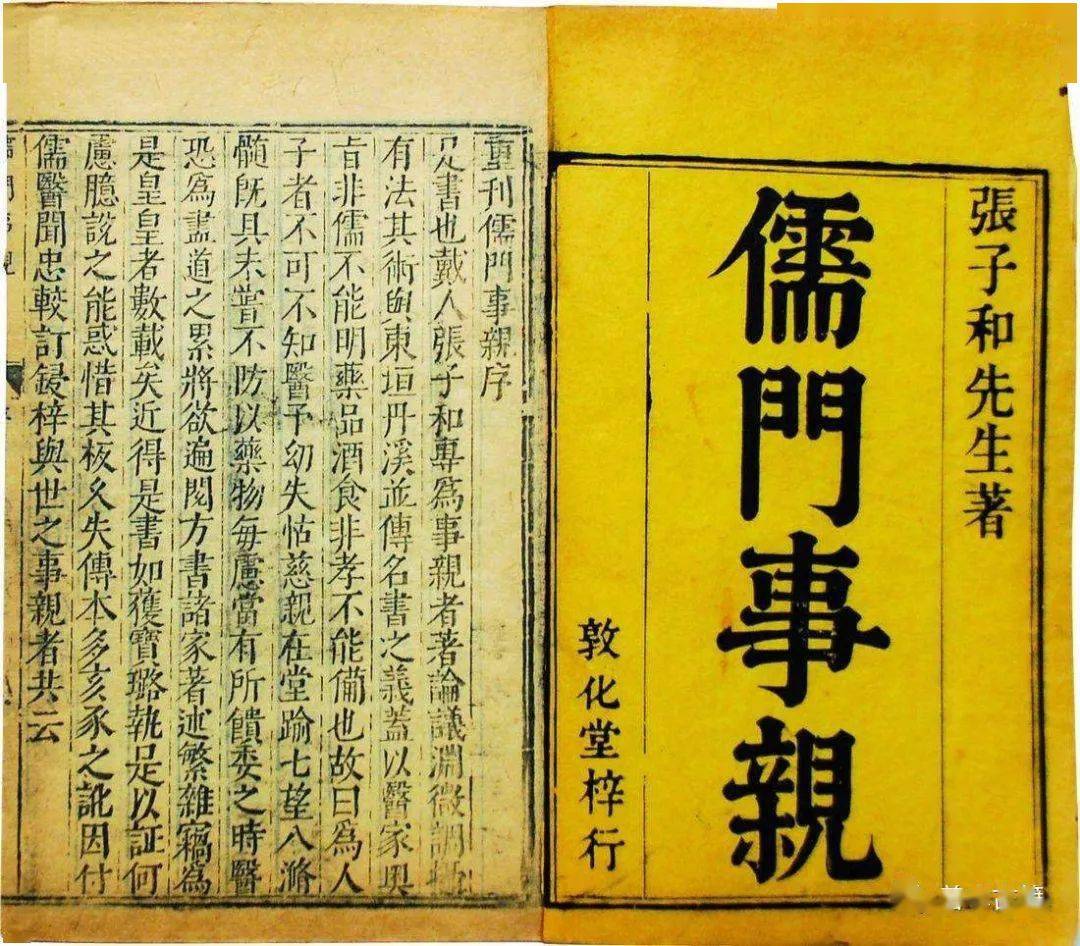 張子和先生著
儒門事親
敦化堂梓行
重刊儒門事親序
是書也戴人張子和專爲事親者著論議淵微調攝
有法其術與東垣丹溪並傳名書之義蓋以醫家奧
旨非儒不能明藥品酒食非孝不能備也故曰爲人
子者不可不知醫予幼失怙慈親在堂踰七望八滫
髓旣具未嘗不防以藥物每慮當有所饋委之時醫
恐爲盡道之累將欲遍閱方書諸家著述繁雜竊爲
是皇皇者數載矣近得是書如獲寶璐執是以証何
慮臆說之能惑惜其板久失傳本多亥豕之訛因付
儒醫聞忠較訂鋟梓與世之事親者共云